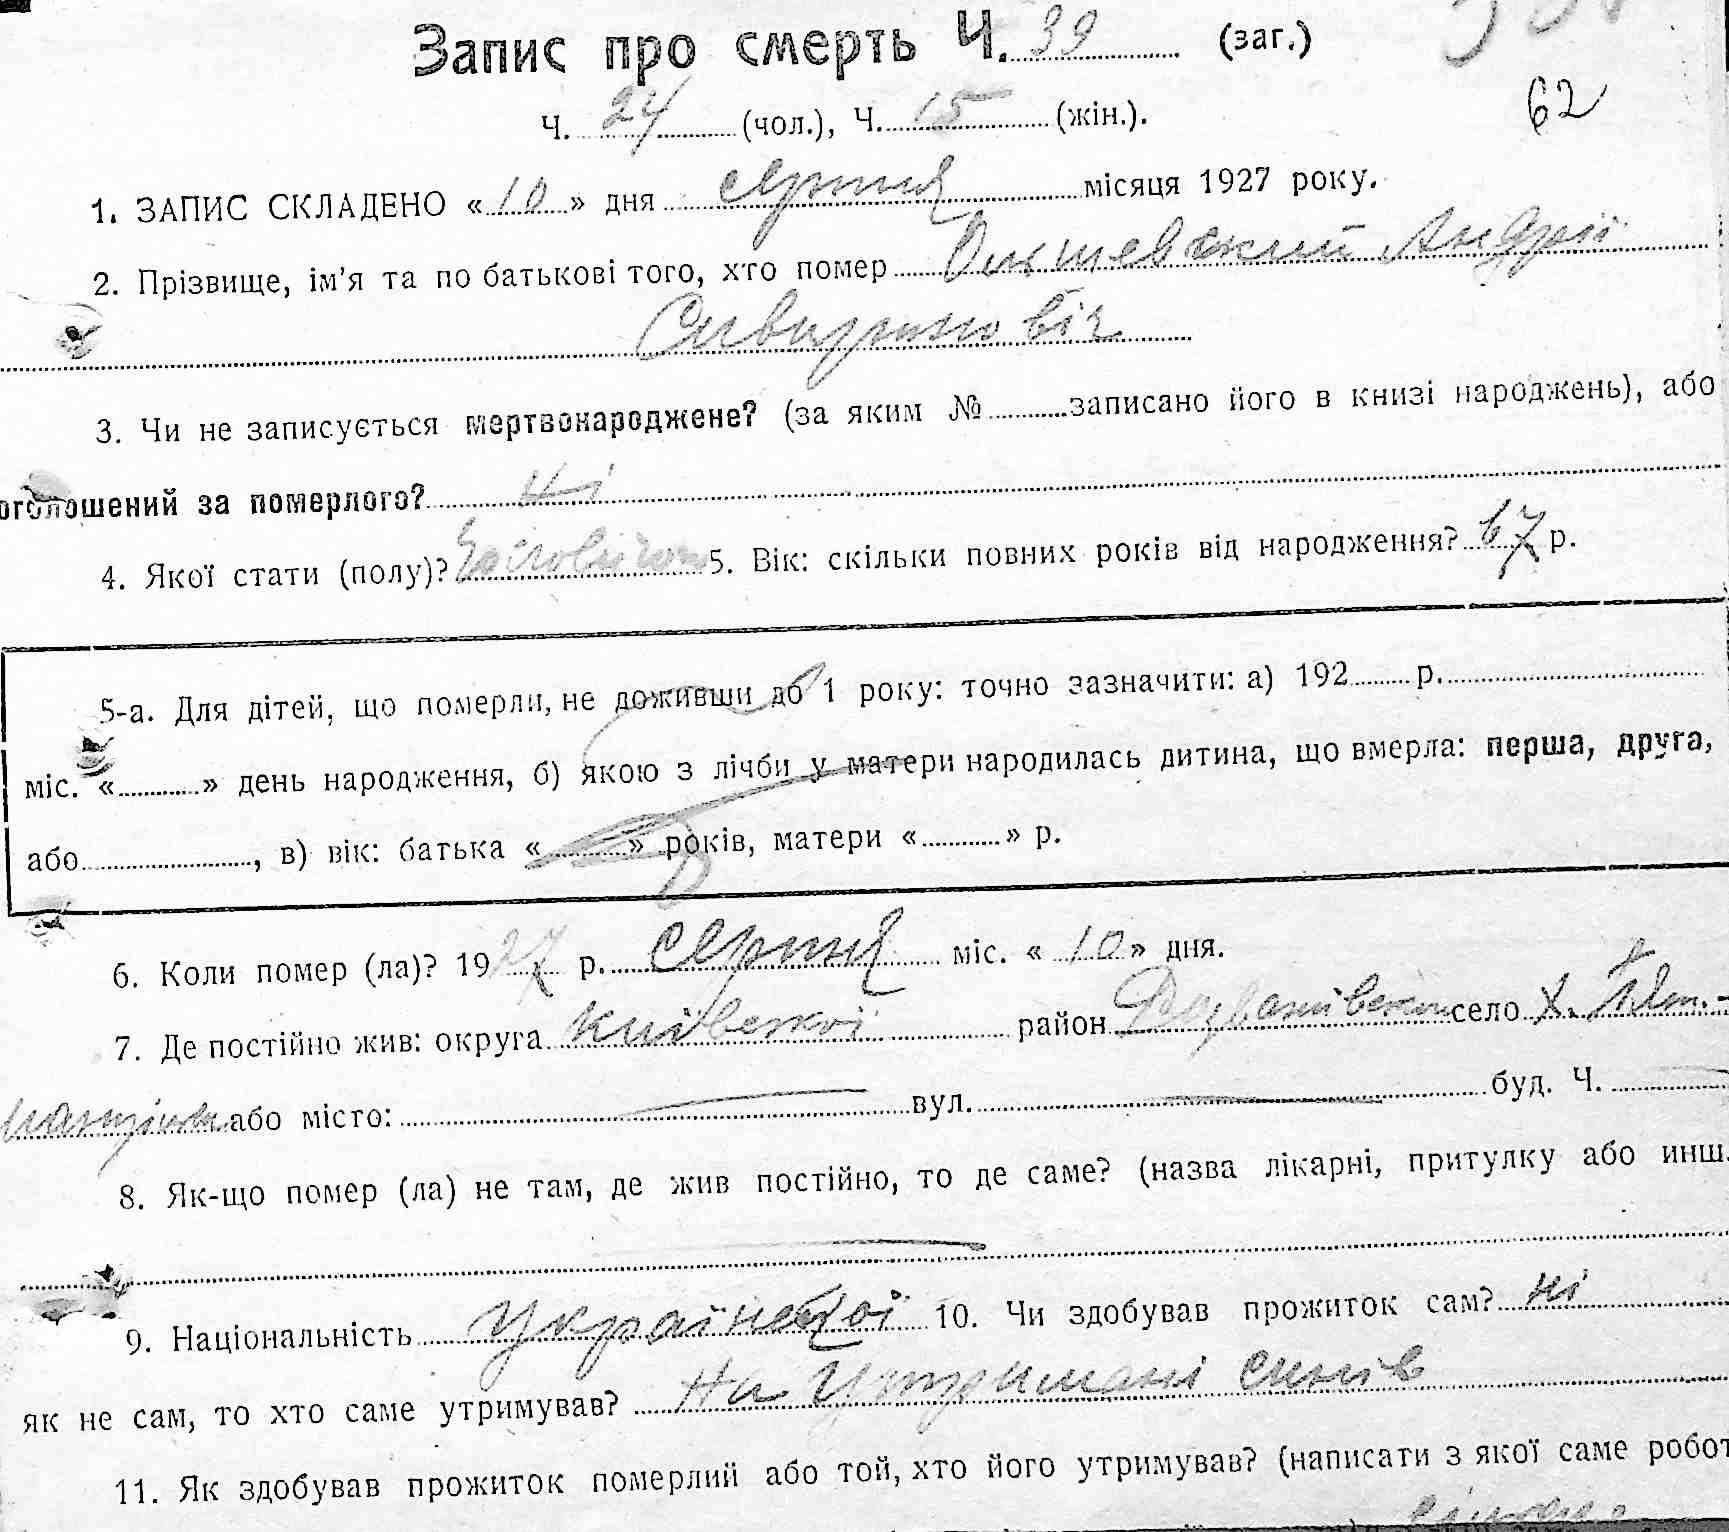 Запис про смерть Ч. 39 (заг.)
62
Ч. 24 (чол.), Ч. 15 (жін.).
1. ЗАПИС СКЛАДЕНО «10» дня серпня місяця 1927 року.
2. Прізвище, ім’я та по батькові того, хто помер Андрій
3. Чи не записується мертвонароджене? (за яким № записано його в книзі народжень), або
оголошений за померлого? ні
4. Якої стати (полу)? 5. Вік: скільки повних років від народження? 67 р.
5-а. Для дітей, що померли, не доживши до 1 року: точно зазначити: а) 192 р.
міс. « » день народження, б) якою з лічби у матери народилась дитина, що вмерла: перша, друга,
або , в) вік: батька « » років, матери « » р.
6. Коли помер (ла)? 1927 р. серпня міс. «10» дня.
7. Де постійно жив: округа Київської район село х.
або місто: вул. буд. Ч.
8. Як-що помер (ла) не там, де жив постійно, то де саме? (назва лікарні, притулку або инш.
9. Національність Української 10. Чи здобував прожиток сам? ні
як не сам, то хто саме утримував? на утримані синів
11. Як здобував прожиток померлий або той, хто його утримував? (написати з якої саме робот